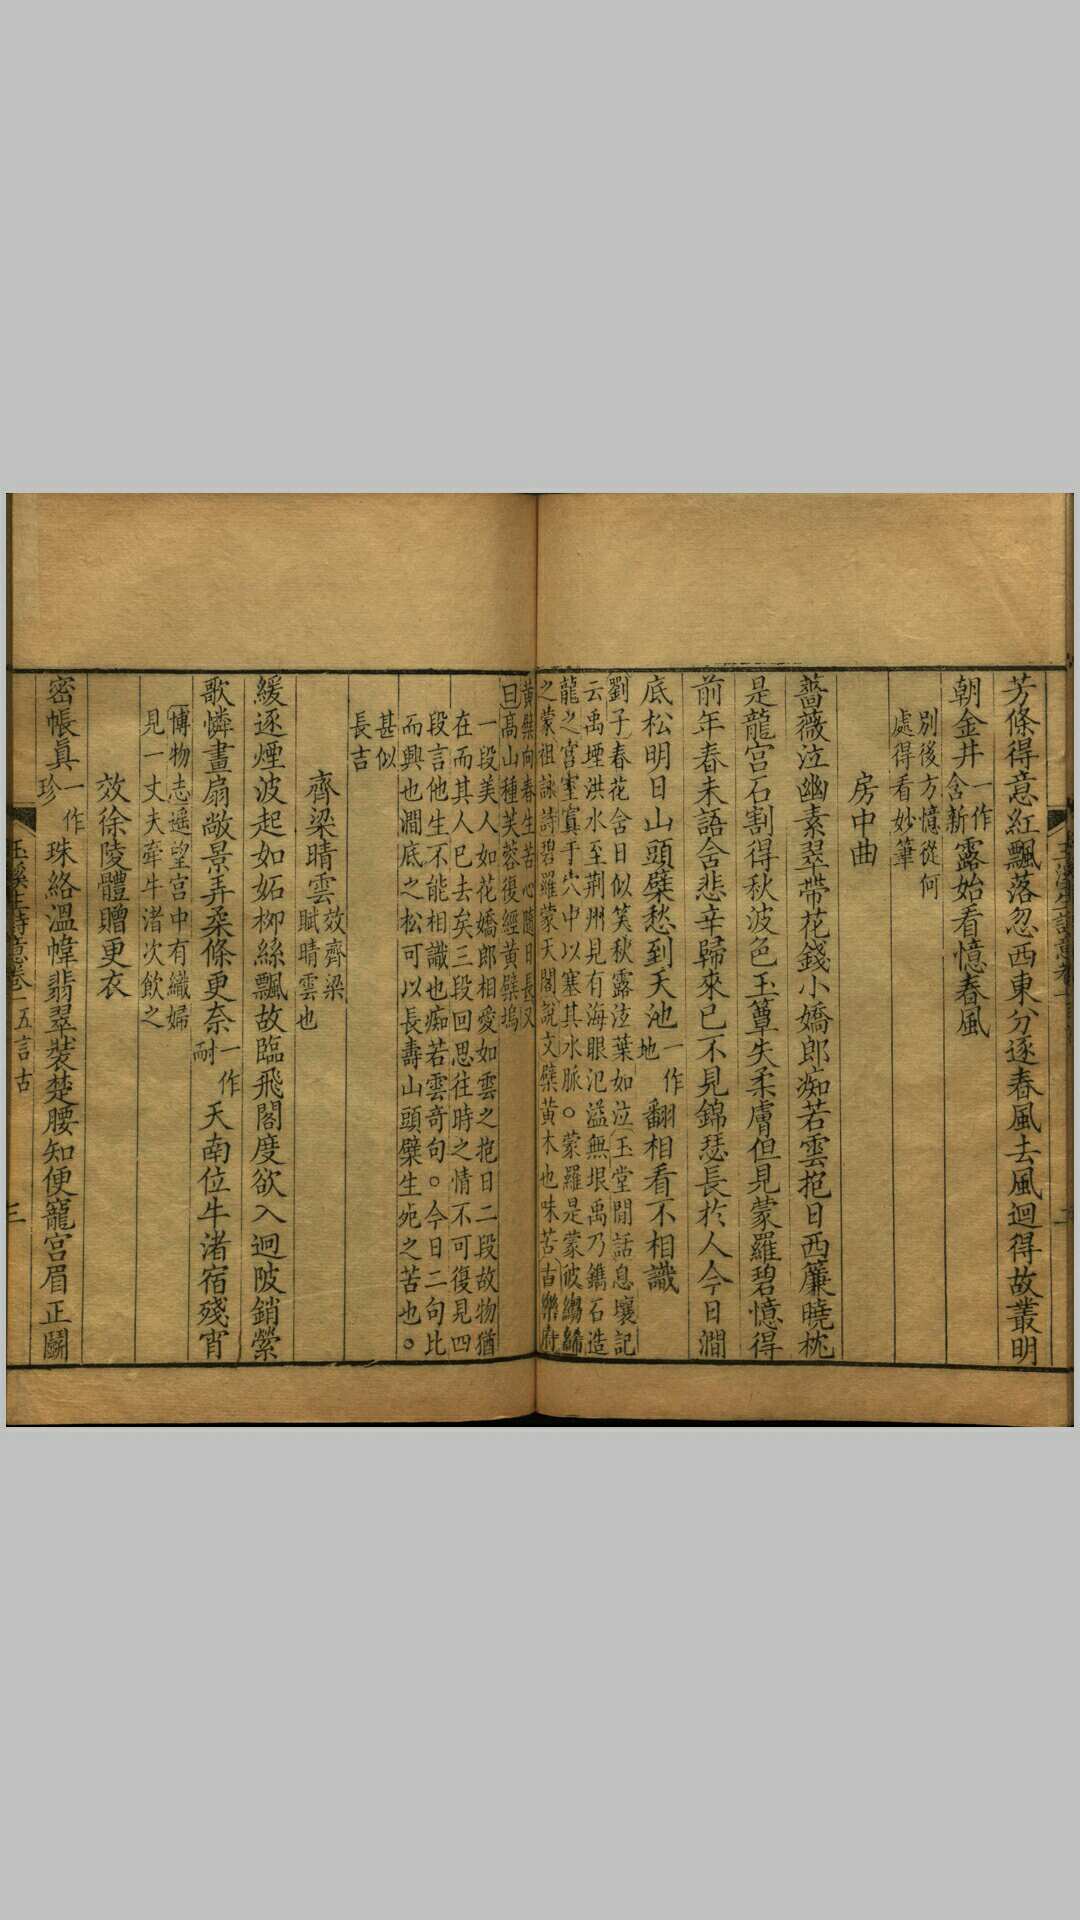 芳條得意紅飄落忽西東分逐春風去風迴得故叢明
朝金井一作含新露始看憶春風
別後方憶從何
處得看妙筆
房中曲
薔薇泣幽素翠帶花錢小嬌郎痴若雲抱日西簾曉枕
是龍宮石割得秋波色玉簟失柔膚但見蒙羅碧憶得
前年春未語含悲辛歸來已不見錦瑟長於人今日澗
底松明日山頭檗愁到天池一作地翻相看不相識
劉子春花含日似笑秋露泫葉如泣玉堂閒話息壤記
云禹堙洪水至荆州見有海眼氾溢無垠禹乃鐫石造
龍之宮室寘于穴中以塞其水脈。蒙羅是蒙彼縐絺
之蒙祖詠詩碧羅蒙天閣說文檗黃木也味苦古樂府
黃檗向春生苦心隨日長又
曰高山種芙蓉復經黃檗塢
一段美人如花嬌郎相愛如雲之抱日二段故物猶
在而其人已去矣三段回思往時之情不可復見四
段言他生不能相識也痴若雲奇句。今日二句比
而興也澗底之松可以長壽山頭檗生死之苦也。
甚似
長吉
齊梁晴雲效齊梁賦晴雲也
緩逐煙波起如妬柳絲飄故臨飛閣度欲入迴陂銷縈
歌憐畫扇敞景弄柔條更奈一作耐天南位牛渚宿殘宵
博物志遥望宮中有織婦
見一丈夫牽牛渚次飲之
效徐陵體贈更衣
密帳真一作珍珠絡溫幃翡翠裝楚腰知便寵宮眉正鬭
玉溪生詩意卷一五言古
三